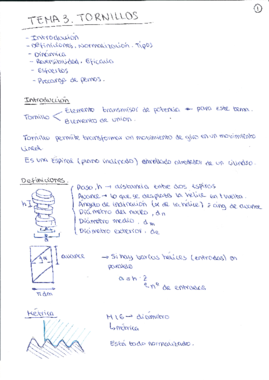 1
TEMA 3. TORNILLOS
- Introducción
- Definiciones. Normalización. Tipos
- Dinámica
- Reversibilidad. Eficacia
- Esfuerzos
- Precarga de pernos.
Introducción
Tornillo
Elemento transmisor de potencia ← para este tema.
Elemento de unión.
Tornillo permite transformar un movimiento de giro en un movimiento
lineal.
Es un espiral (plano inclinado) enrollado alrededor de un cilindro.
Definiciones
Paso, h → distancia entre dos espiras
Avance → lo que se desplaza la hélice en 1 vuelta.
Ángulo de inclinación
Diámetro del núcleo, dn
Diámetro medio, dm
Diámetro exterior, de
h
avance
π dm
→ Si hay varias hélices (entradas) en
paralelo
a = h · z
nº de entradas
Métrica
M16 → diámetro
métrica
Está todo normalizado.